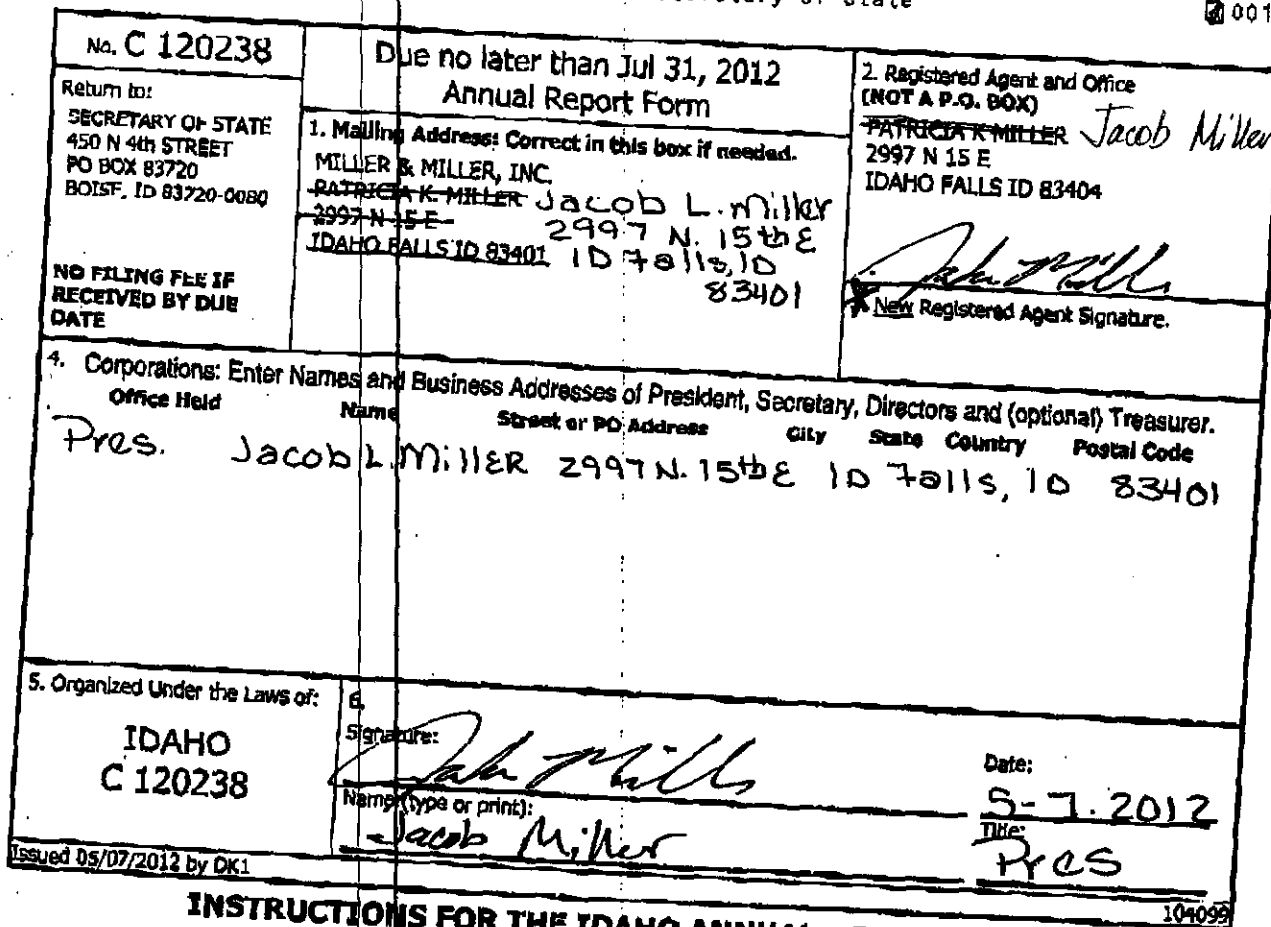 of State
001
No. C 120238
Return to:
SECRETARY OF STATE
450 N 4th STREET
PO BOX 83720
BOISE, ID 83720-0080
NO FILING FEE IF
RECEIVED BY DUE
DATE
Due no later than Jul 31, 2012
Annual Report Form
1. Mailing Address: Correct in this box if needed.
MILLER & MILLER, INC.
PATRICIA K. MILLER Jacob L. Miller
2997 N 15 E 2997 N. 15th E
IDAHO FALLS ID 83401 ID Falls, ID
83401
2. Registered Agent and Office
(NOT A P.O. BOX)
PATRICIA K MILLER Jacob Miller
2997 N 15 E
IDAHO FALLS ID 83404
New Registered Agent Signature.
4. Corporations: Enter Names and Business Addresses of President, Secretary, Directors and (optional) Treasurer.
Office Held Name Street or PO Address City State Country Postal Code
Pres. Jacob L. Miller 2997 N. 15th E ID Falls, ID 83401
5. Organized Under the Laws of:
IDAHO
C 120238
6.
Signature:
Name (type or print):
Jacob Miller
Date:
5-7.2012
Title:
Pres
Issued 05/07/2012 by DK1
104099
INSTRUCTIONS FOR THE IDAHO ANNUAL